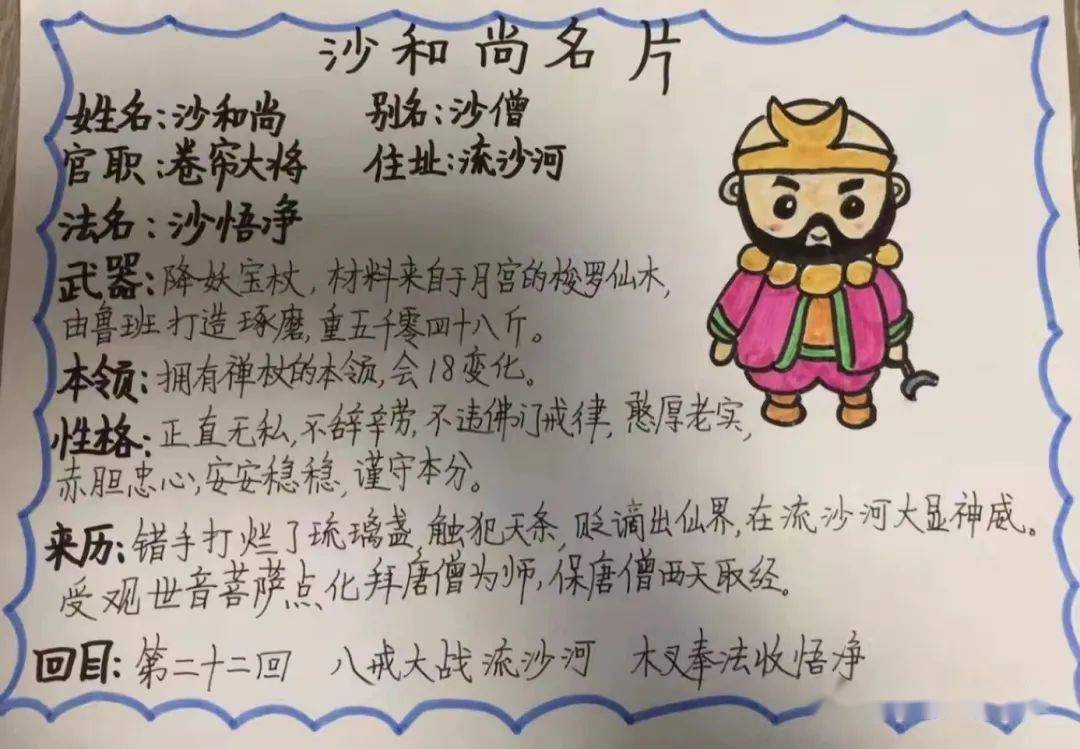 沙和尚名片
姓名:沙和尚 别名:沙僧
官职:卷帘大将 住址:流沙河
法名:沙悟净
武器:降妖宝杖,材料来自于月宫的梭罗仙木,
由鲁班打造琢磨,重五千零四十八斤。
本领:拥有禅杖的本领,会18变化。
性格:正直无私,不辞辛劳,不违佛门戒律,憨厚老实,
赤胆忠心,安安稳稳,谨守本分。
来历:错手打烂了琉璃盏,触犯天条,贬谪出仙界,在流沙河大显神威。
受观世音菩萨点化拜唐僧为师,保唐僧西天取经。
回目:第二十二回 八戒大战流沙河 木叉奉法收悟净